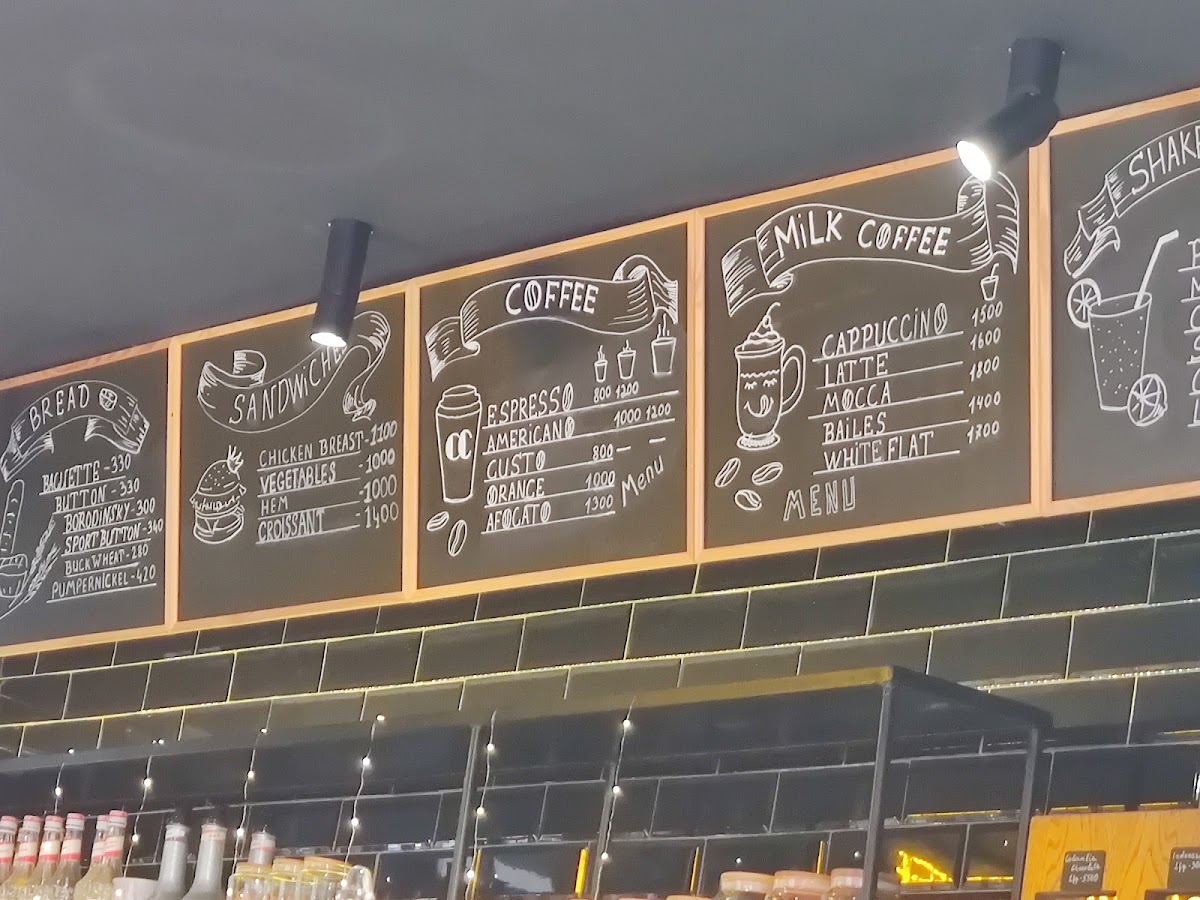 BREAD
BAGUETTE -330
BUTTON -330
BORODINSKY -300
SPORT BUTTON -340
BUCKWHEAT -280
PUMPERNICKEL -420
SANDWICHES
CHICKEN BREAST -1100
VEGETABLES -1000
HEM -1000
CROISSANT -1400
COFFEE
ESPRESSO 800 1200
AMERICANO 1000 1200
GUSTO 800 — —
ORANGE 1000
AFOGATO 1300
Menu
MILK COFFEE
CAPPUCCINO 1500
LATTE 1600
MOCCA 1800
BAILES 1400
WHITE FLAT 1700
MENU